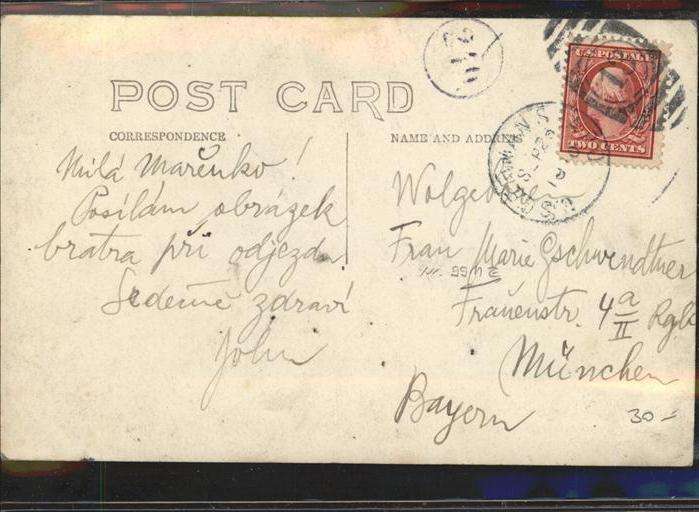 POST CARD
CORRESPONDENCE
NAME AND ADDRESS
U.S. POSTAGE
TWO CENTS
Milá Mařenko!
Posílám obrázek
bratra při odjezdu
Srdečně zdraví
John
Frau Marie Gschwendtner
Frauenstr. 4 a/II Rgb
München
Bayern
30-